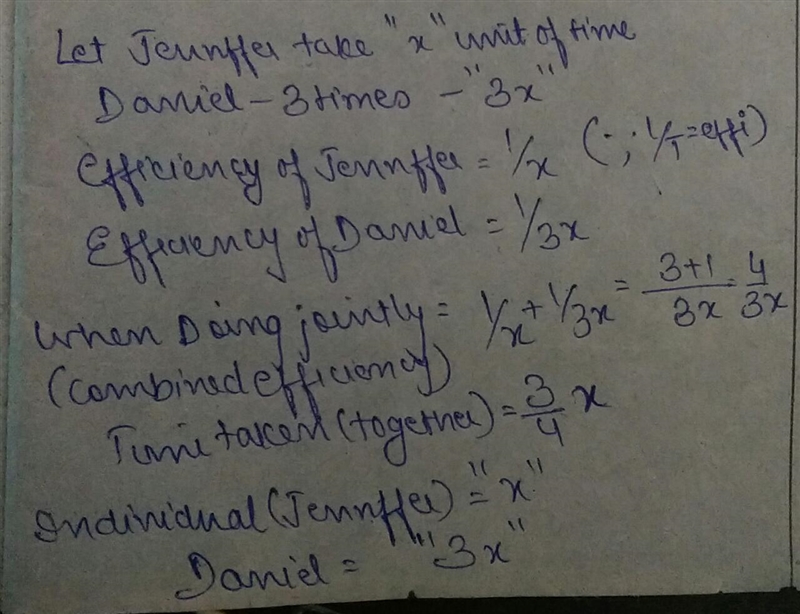 Let Jennffer take "x" unit of time
Daniel - 3 times - "3x"
Efficiency of Jennffer = 1/x (∵ 1/T = effi)
Efficiency of Daniel = 1/3x
When Doing jointly = 1/x + 1/3x = (3+1)/3x = 4/3x
(combined efficiency)
Time taken (together) = 3/4 x
Individual (Jennffer) = "x"
Daniel = "3x"